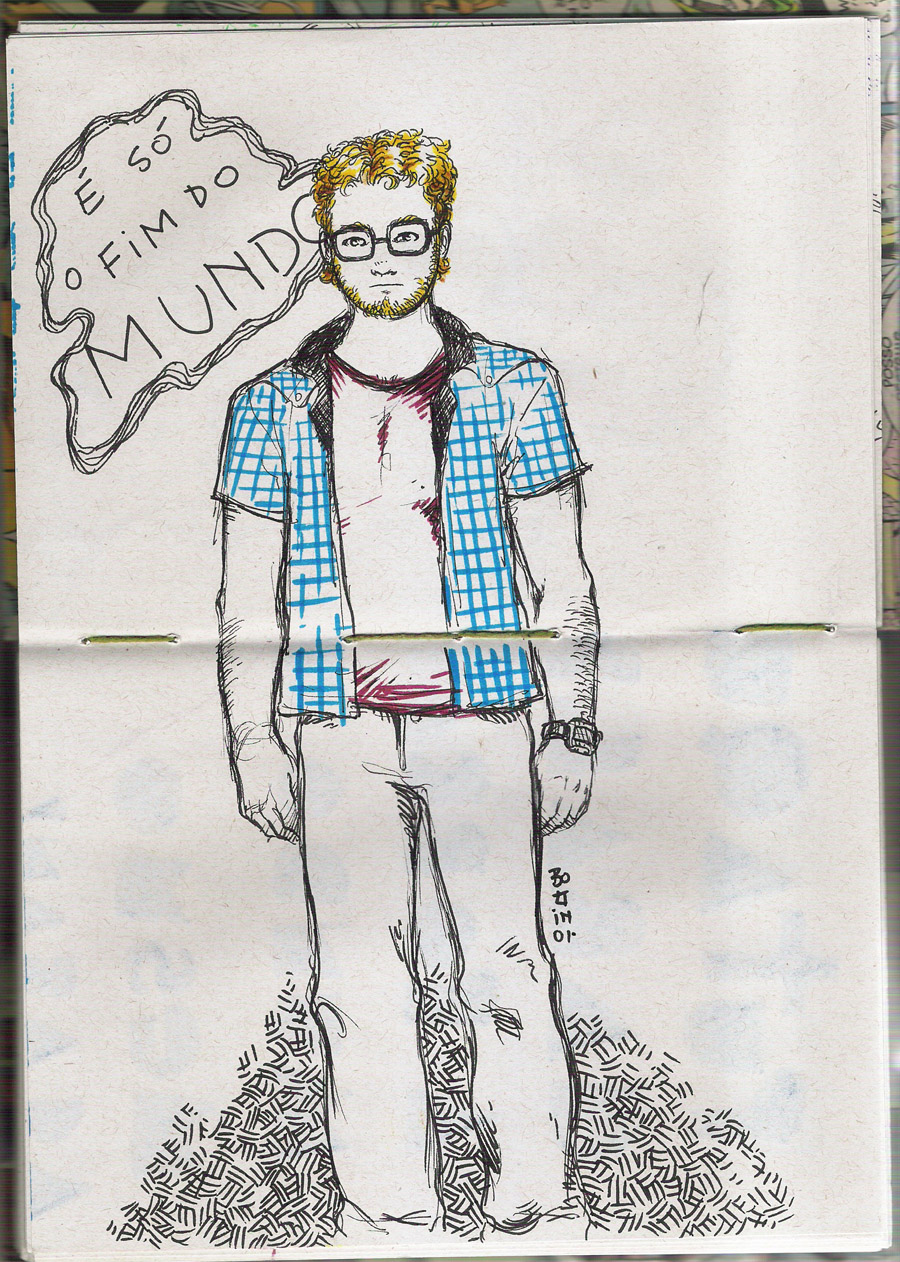 É SÓ
O FIM DO
MUNDO
POSSO